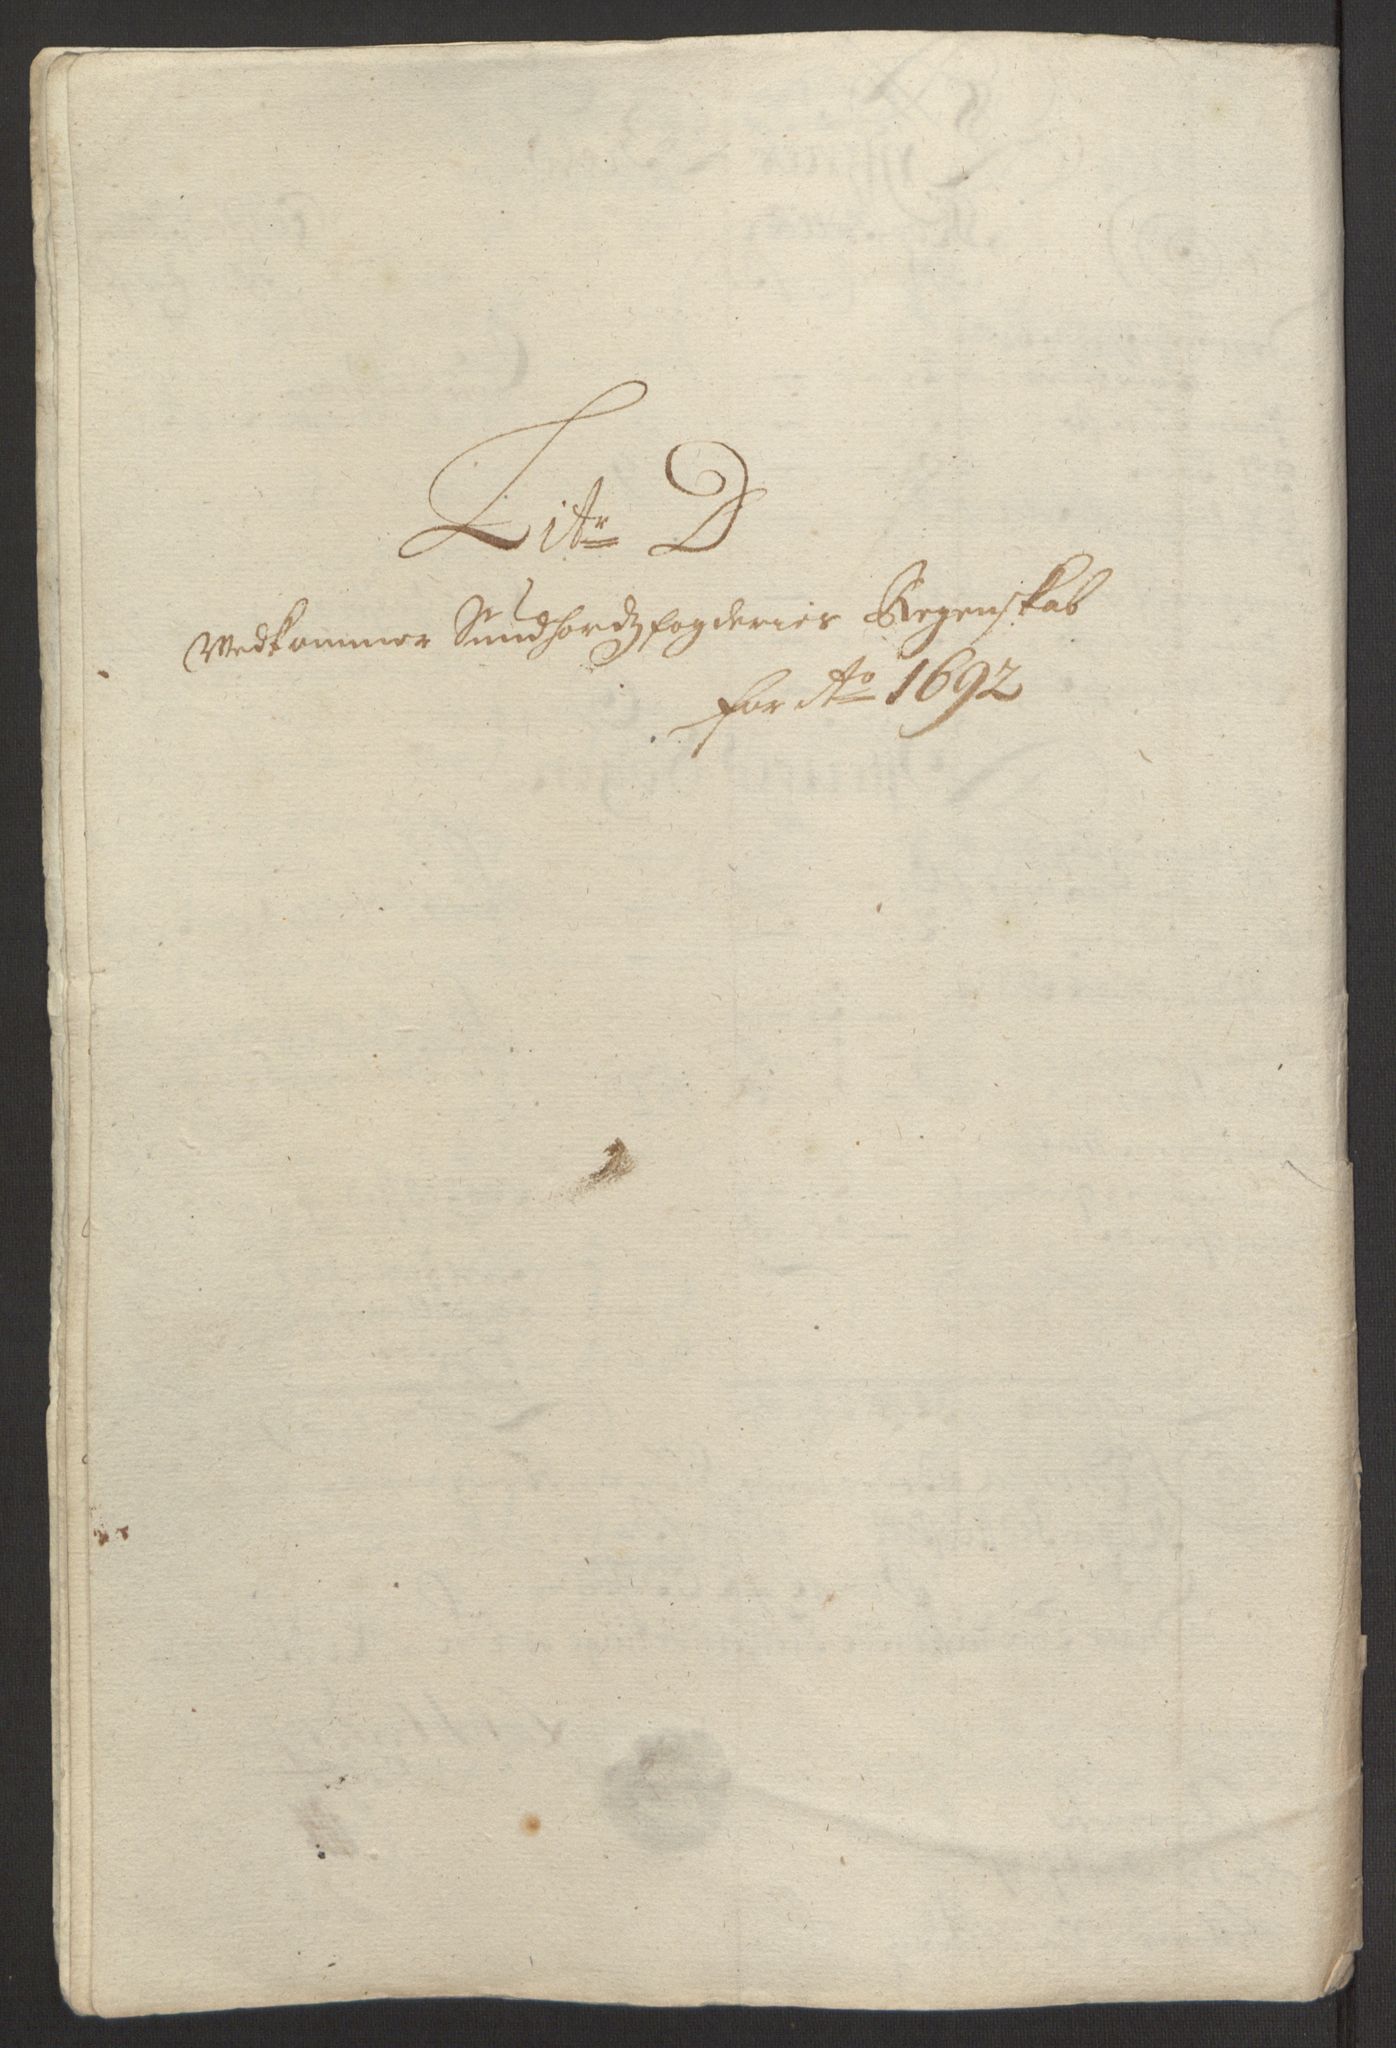 Litr D
Vedkommer Sundhordz fogderies Regenskab
for Ao 1692